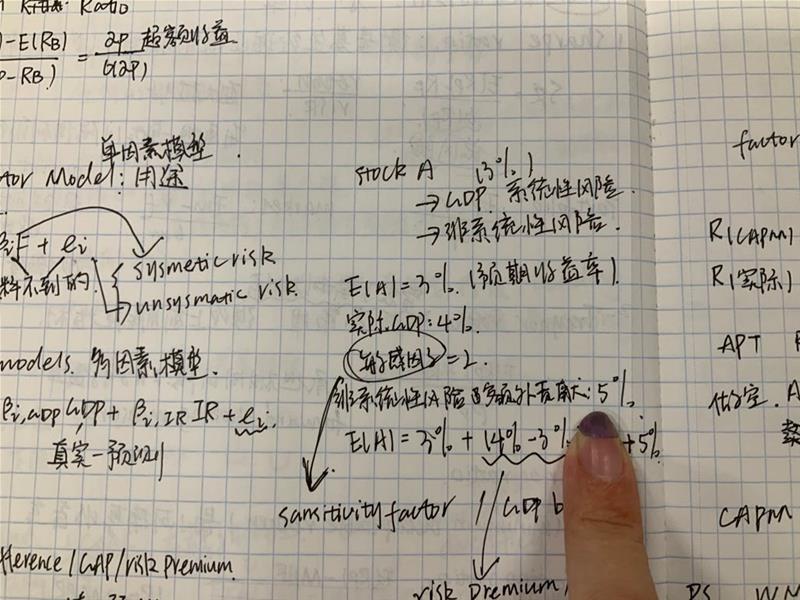 Ratio
)-E(RB) / P-RB) = αP 超额收益 / 6(αP)
单因素模型.
tor Model: 用途
βiF + ei
料不到的.
sysmetic risk
unsysmatic risk.
models. 多因素模型.
βi,GDP GDP + βi,IR IR + ei.
真实-预测
ference/GAP/risk premium.
stock A (3%)
→GDP 系统性风险.
→非系统性风险.
E(A)=3%. (预期收益率).
实际GDP: 4%.
敏感因子=2.
非系统性风险 额外贡献: 5%.
E(A)=3%+(4%-3% +5%
sansitivity factor / GDP b
risk Premium.
factor
R(CAPM)
R(实际)
APT
CAPM